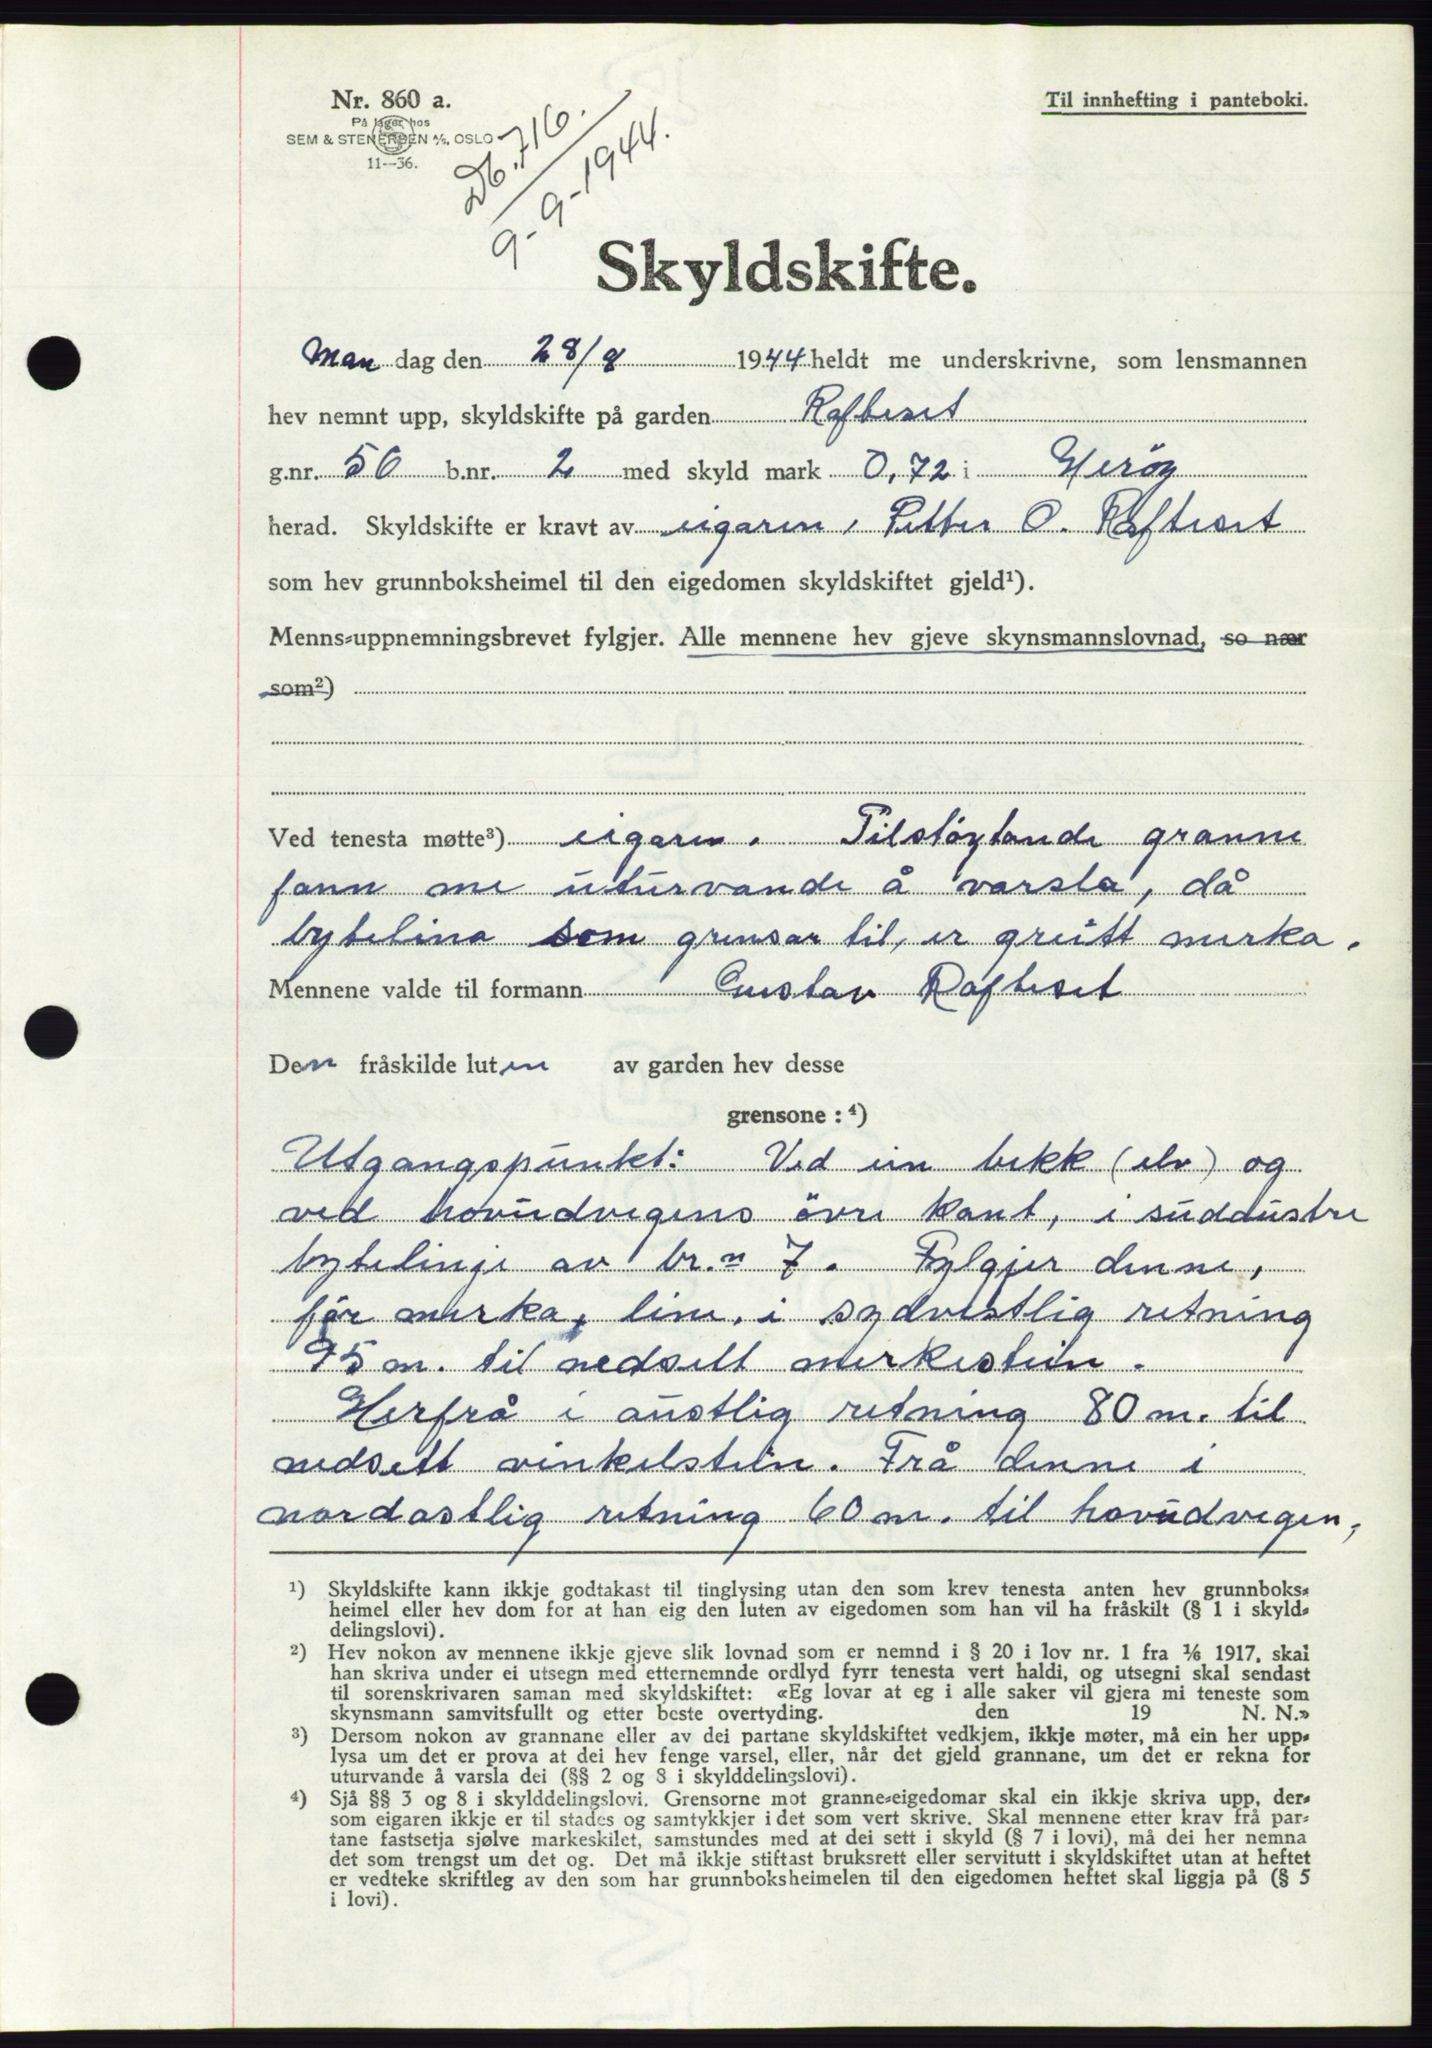 Nr. 860 a.
På lager hos
SEM & STENERSEN A/S, OSLO
11--36.
Til innhefting i panteboki.
Db. 716.
9-9-1944.
Skyldskifte.
Man dag den 28/8 1944 heldt me underskrivne, som lensmannen
hev nemnt upp, skyldskifte på garden Rafteset
g.nr. 56 b.nr. 2 med skyld mark 0,72 i Herøy
herad. Skyldskifte er kravt av eigaren, Petter O. Rafteset
som hev grunnboksheimel til den eigedomen skyldskiftet gjeld¹).
Menns-uppnemningsbrevet fylgjer. Alle mennene hev gjeve skynsmannslovnad, so nær
som²)
Ved tenesta møtte³) eigaren. Tilstöytande granne
fann me uturvande å varsla, då
bytelina som grensar til, er greitt merka.
Mennene valde til formann Gustav Rafteset
Den fråskilde luten av garden hev desse
grensone : ⁴)
Utgangspunkt: Ved ein bekk (elv) og
ved hovudvegens övre kant, i suddustre
bytelinje av br.n 7. Fylgjer denne,
før merka, line, i sydvestlig retning
95 m. til nedsett merkestein.
Herfrå i austlig retning 80 m. til
nedsett vinkelstein. Frå denne i
nordostlig retning 60 m. til hovudvegen,
¹) Skyldskifte kann ikkje godtakast til tinglysing utan den som krev tenesta anten hev grunnboks-
heimel eller hev dom for at han eig den luten av eigedomen som han vil ha fråskilt (§ 1 i skyld-
delingslovi).
²) Hev nokon av mennene ikkje gjeve slik lovnad som er nemnd i § 20 i lov nr. 1 fra 1/6 1917, skal
han skriva under ei utsegn med etternemnde ordlyd fyrr tenesta vert haldi, og utsegni skal sendast
til sorenskrivaren saman med skyldskiftet: «Eg lovar at eg i alle saker vil gjera mi teneste som
skynsmann samvitsfullt og etter beste overtyding. den 19 N. N.»
³) Dersom nokon av grannane eller av dei partane skyldskiftet vedkjem, ikkje møter, må ein her upp-
lysa um det er prova at dei hev fenge varsel, eller, når det gjeld grannane, um det er rekna for
uturvande å varsla dei (§§ 2 og 8 i skylddelingslovi).
⁴) Sjå §§ 3 og 8 i skylddelingslovi. Grensorne mot granne-eigedomar skal ein ikkje skriva upp, der-
som eigaren ikkje er til stades og samtykkjer i det som vert skrive. Skal mennene etter krav frå par-
tane fastsetja sjølve markeskilet, samstundes med at dei sett i skyld (§ 7 i lovi), må dei her nemna
det som trengst um det og. Det må ikkje stiftast bruksrett eller servitutt i skyldskiftet utan at heftet
er vedteke skriftleg av den som har grunnboksheimelen til den eigedomen heftet skal liggja på (§ 5
i lovi).